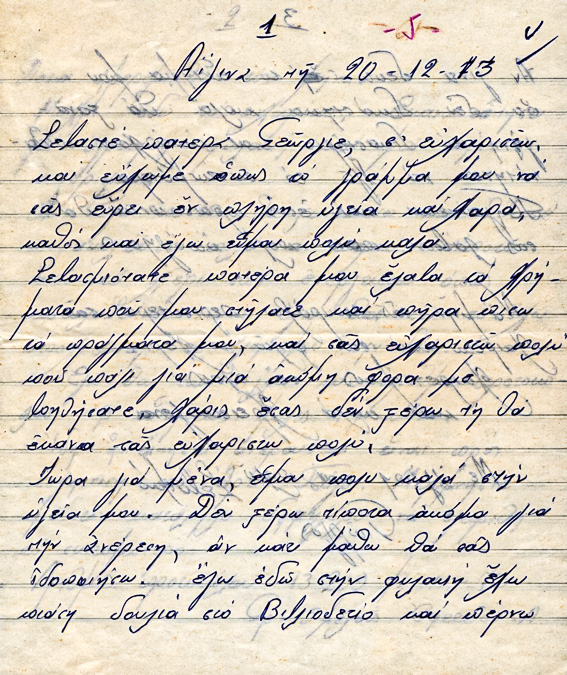 1 -5-
Αίγινα τη 20-12-73
Σεβαστέ πατερα Γεώργιε, σ' ευχαριστώ,
και εύχωμε όπως το γράμμα μου νά
σας εύρει έν πλήρη υγεία και χαρά,
καθός και εγω είμαι πολύ καλά
Σεβασμιότατε πατερα μου έλαβα τα χρή-
ματα πού μου στήλατε και πήρα πίσω
τά πράγματα μου, και σας ευχαριστώ πολύ
πού πολυ για μιά ακόμη φορα με
βοηθήσατε χάρις έσας δεν ξέρω τη θα
έκανα σας ευχαριστω πολυ,
Τωρα για μένα, είμαι πολυ καλά στην
υγεία μου. Δέν ξερω τίποτα ακόμα γιά
την Ανέρεση, άν κάτι μαθω θά σας
ιδοποιήσω. έγω έδώ στήν φυλακή έχω
πιάση δουλιά στό Βιβλιοδετίο και πέρνω